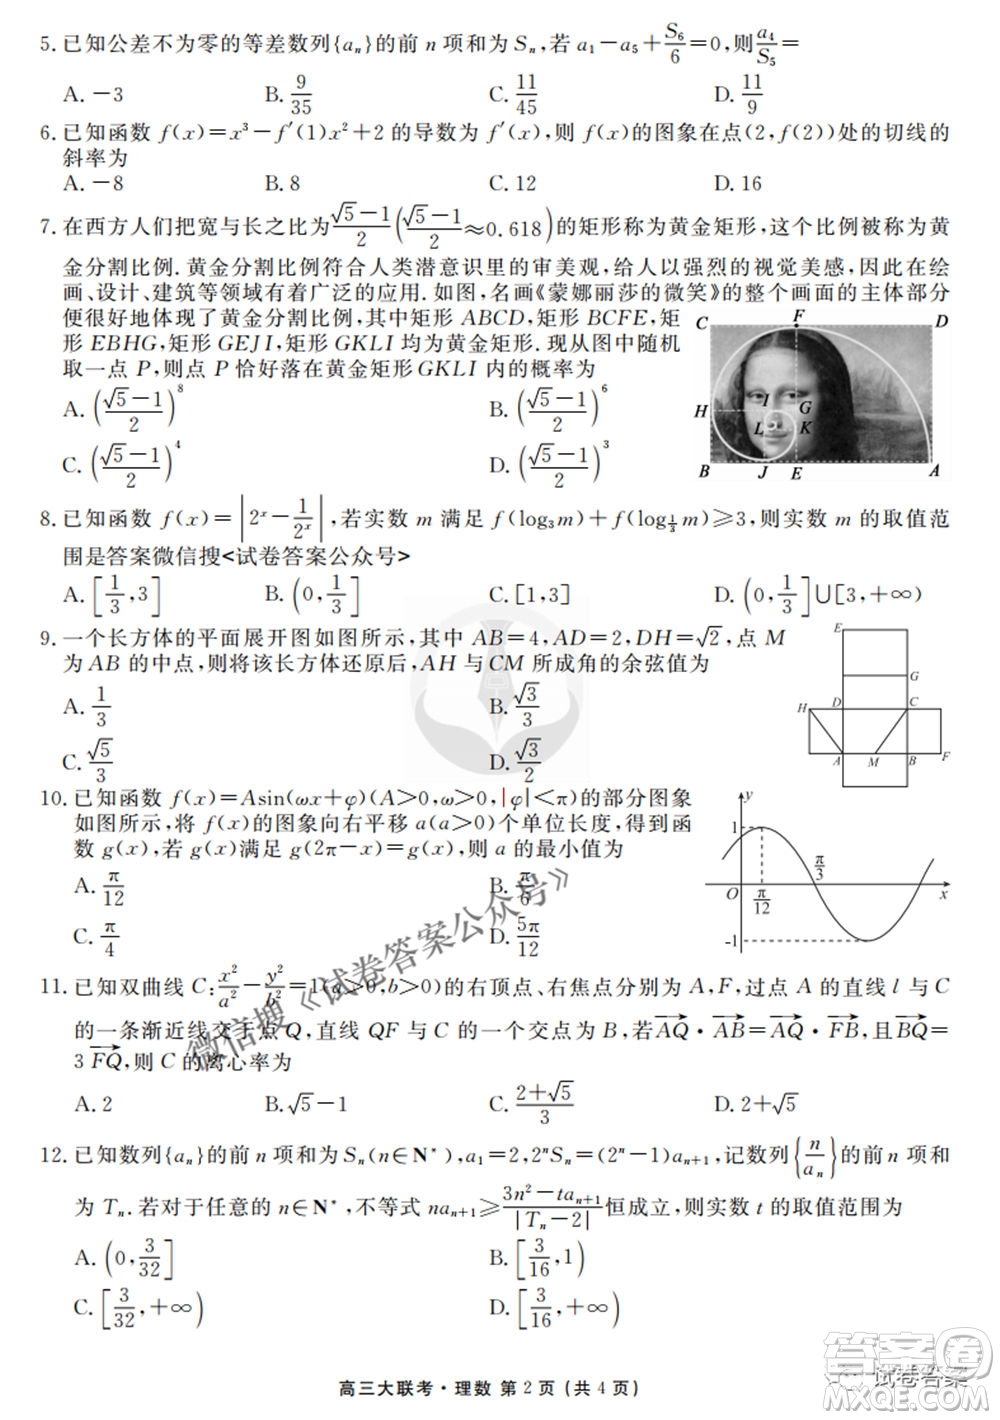 5. 已知公差不为零的等差数列{aₙ}的前 n 项和为 Sₙ,若 a₁-a₅+S₆/6=0,则a₄/S₅=
A. -3  B. 9/35  C. 11/45  D. 11/9
6. 已知函数 f(x)=x³-f′(1)x²+2 的导数为 f′(x),则 f(x)的图象在点(2,f(2))处的切线的
斜率为
A. -8  B. 8  C. 12  D. 16
7. 在西方人们把宽与长之比为(√5-1)/2((√5-1)/2≈0.618)的矩形称为黄金矩形,这个比例被称为黄
金分割比例.黄金分割比例符合人类潜意识里的审美观,给人以强烈的视觉美感,因此在绘
画、设计、建筑等领域有着广泛的应用.如图,名画《蒙娜丽莎的微笑》的整个画面的主体部分
便很好地体现了黄金分割比例,其中矩形 ABCD,矩形 BCFE,矩
形 EBHG,矩形 GEJI,矩形 GKLI 均为黄金矩形.现从图中随机
取一点 P,则点 P 恰好落在黄金矩形 GKLI 内的概率为
A. ((√5-1)/2)⁸  B. ((√5-1)/2)⁶
C. ((√5-1)/2)⁴  D. ((√5-1)/2)³
C F D
H I G
L K
B J E A
8. 已知函数 f(x)=|2ˣ-1/2ˣ|,若实数 m 满足 f(log₃m)+f(log_{1/3}m)≥3,则实数 m 的取值范
围是答案微信搜<试卷答案公众号>
A. [1/3,3]  B. (0,1/3]  C. [1,3]  D. (0,1/3]∪[3,+∞)
9. 一个长方体的平面展开图如图所示,其中 AB=4,AD=2,DH=√2,点 M
为 AB 的中点,则将该长方体还原后,AH 与 CM 所成角的余弦值为
A. 1/3  B. √3/3
C. √5/3  D. √3/2
E
G
H D C
A M B F
10. 已知函数 f(x)=Asin(ωx+φ)(A>0,ω>0,|φ|<π)的部分图象
如图所示,将 f(x)的图象向右平移 a(a>0)个单位长度,得到函
数 g(x),若 g(x)满足 g(2π-x)=g(x),则 a 的最小值为
A. π/12  B. π/6
C. π/4  D. 5π/12
y
1
π/3
O π/12 x
-1
11. 已知双曲线 C:x²/a²-y²/b²=1(a>0,b>0)的右顶点、右焦点分别为 A,F,过点 A 的直线 l 与 C
的一条渐近线交于点 Q,直线 QF 与 C 的一个交点为 B,若AQ→·AB→=AQ→·FB→,且BQ→=
3FQ→,则 C 的离心率为
A. 2  B. √5-1  C. (2+√5)/3  D. 2+√5
12. 已知数列{aₙ}的前 n 项和为 Sₙ(n∈N*),a₁=2,2ⁿSₙ=(2ⁿ-1)aₙ₊₁,记数列{n/aₙ}的前 n 项和
为 Tₙ.若对于任意的 n∈N*,不等式 naₙ₊₁≥(3n²-taₙ₊₁)/|Tₙ-2|恒成立,则实数 t 的取值范围为
A. (0,3/32]  B. [3/16,1)
C. [3/32,+∞)  D. [3/16,+∞)
高三大联考·理数 第 2 页 (共 4 页)
微信搜《试卷答案公众号》
答案卷
试卷答案
MXQE.COM